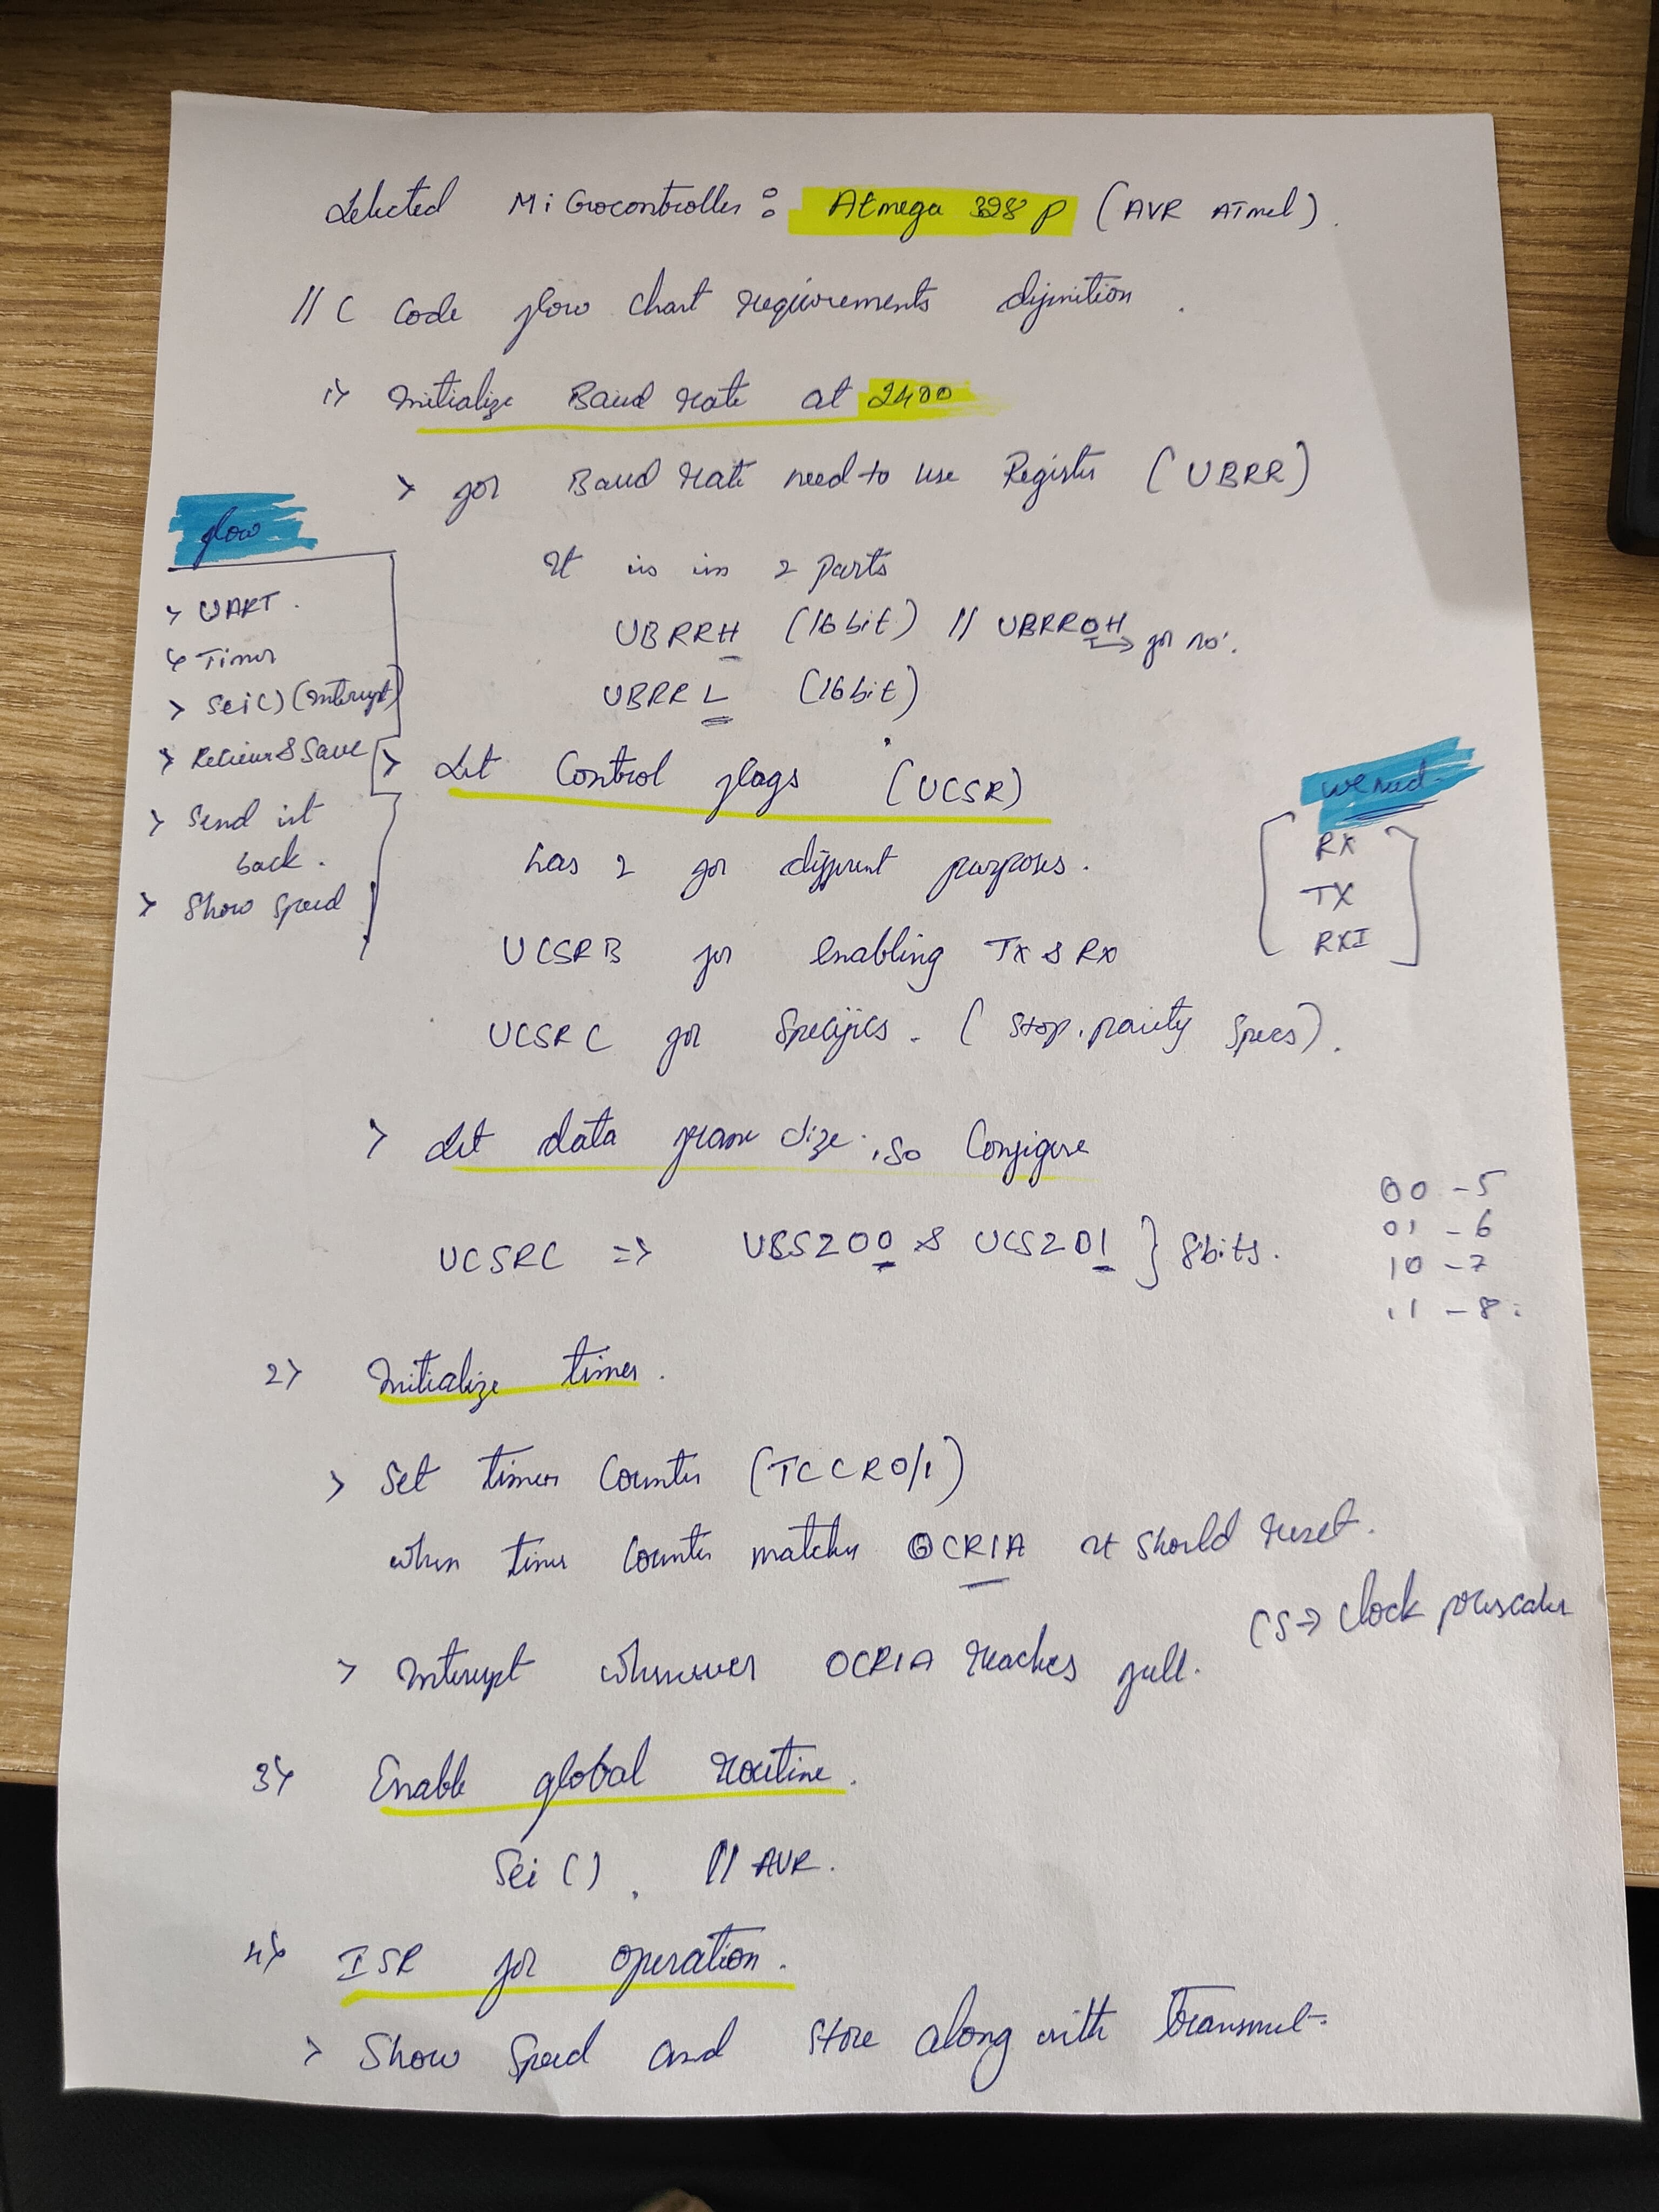 Selected MiGrocontroller : Atmega 328 p (AVR ATmel).
// C Code flow chart requirements definition.
1> Initialize Baud rate at 2400
> for Baud rate need to use Register (UBRR)
It is in 2 parts
UBRRH (16bit) // UBRR0H → for no'.
UBRRL (16bit)
flow
> UART.
> Timer
> Sei() (Interrupt)
> Recieve & Save
> Send it back.
> Show Speed
> Set Control flags (UCSR)
has 2 for different purposes.
UCSRB for enabling Tx & Rx
UCSRC for Specifics. (Stop, parity Specs).
we need
RX
TX
RXI
> Set data frame size, so Configure
UCSRC => UBSZ00 & UCSZ01 } 8bits.
00 - 5
01 - 6
10 - 7
11 - 8.
2> Initialize timer.
> Set timer Counter (TCCR0/1)
when timer Counter matches OCR1A it should reset.
CS → Clock prescaler
> Interrupt whenever OCR1A reaches full.
3> Enable global routine.
Sei(). // AVR.
4> ISR for operation.
> Show Speed and store along with transmit.